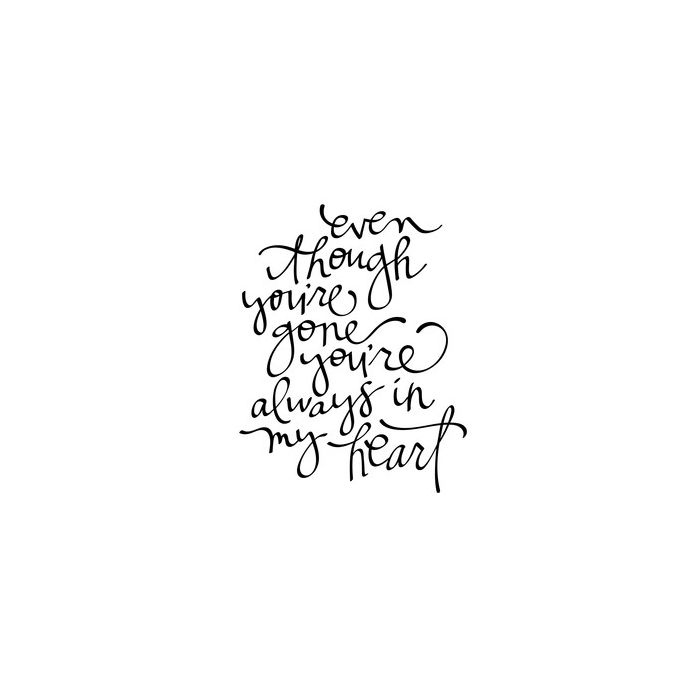 even
though
you're
gone
you're
always in
my heart